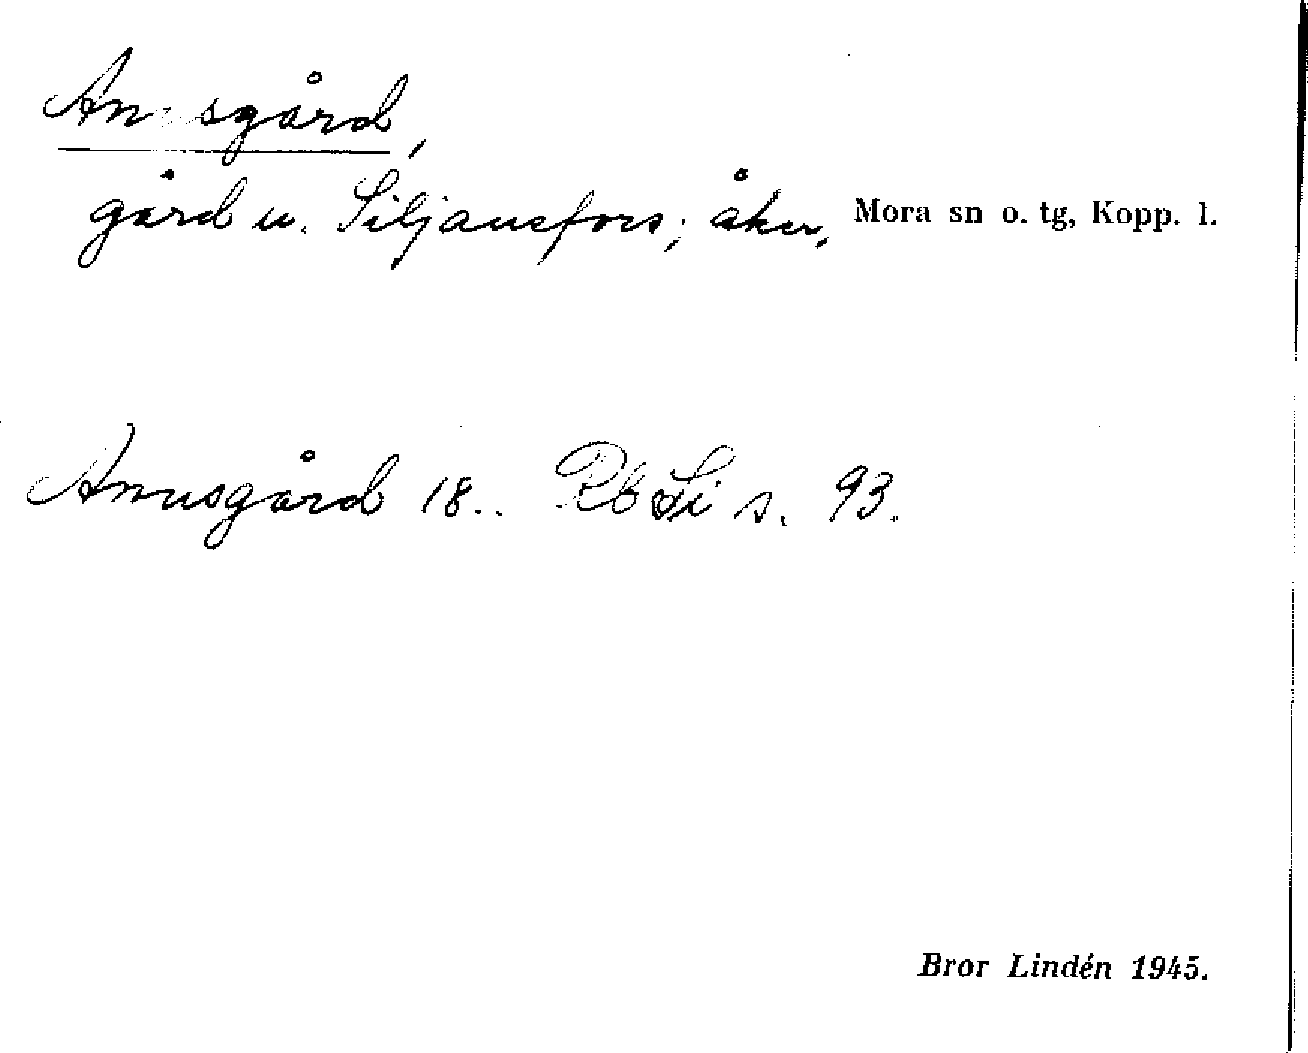 Annusgård,
gård u. Siljansfors; åker. Mora sn o. tg, Kopp. l.
Annusgård 18.. Rb Si s. 93.
Bror Lindén 1945.